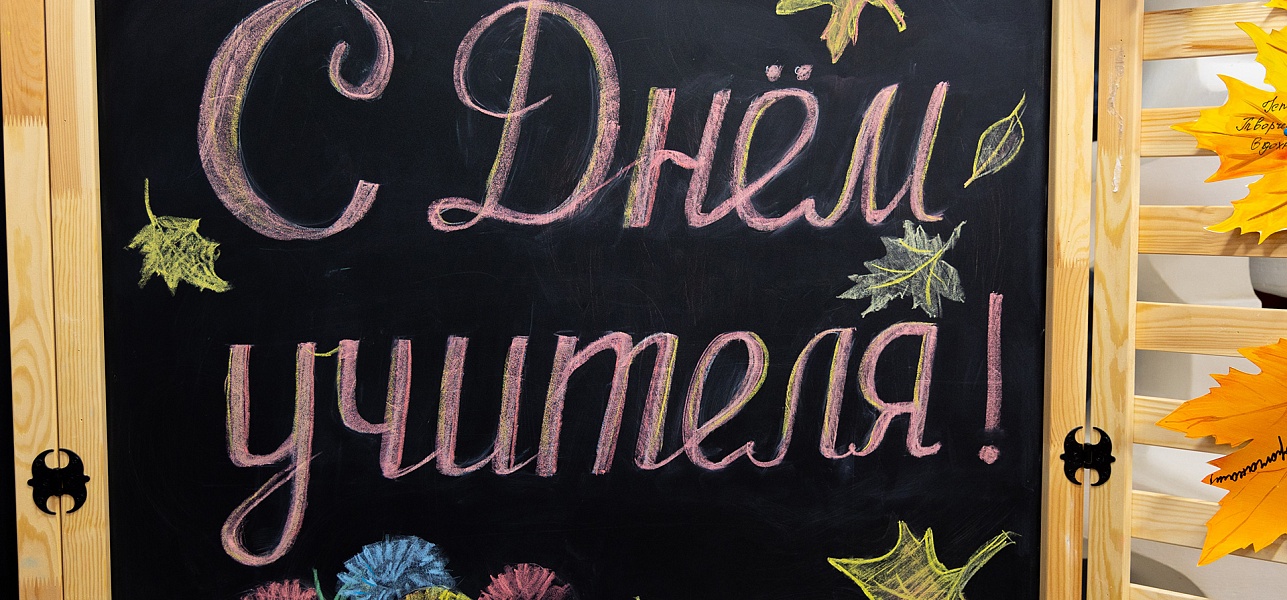 С Днём
учителя!